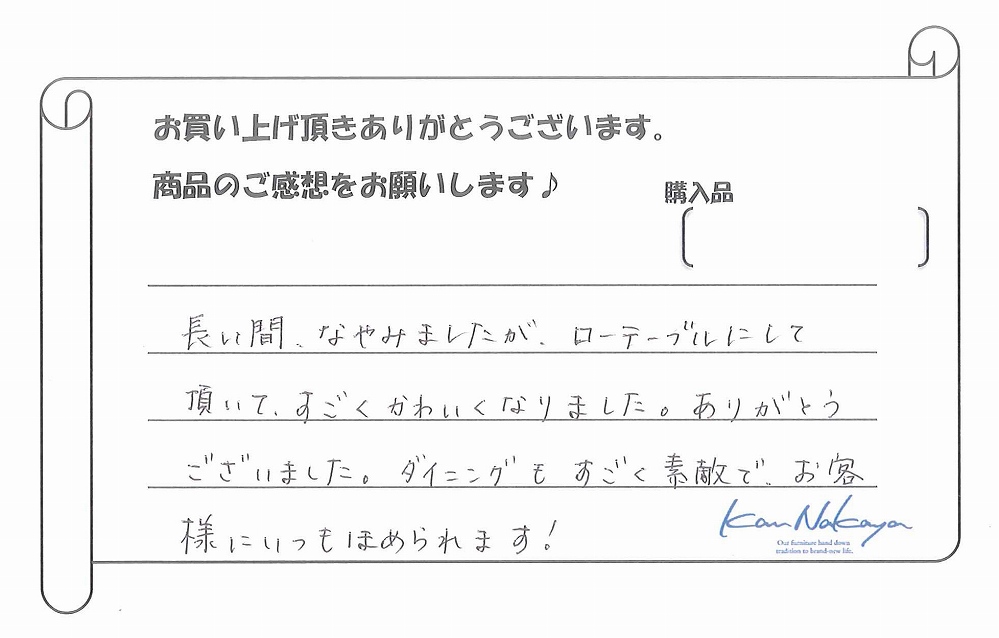 お買い上げ頂きありがとうございます。
商品のご感想をお願いします♪
購入品
長い間、なやみましたが、ローテーブルにして
頂いて、すごくかわいくなりました。ありがとう
ございました。ダイニングもすごく素敵で、お客
様にいつもほめられます!
Kan Nakaya
Our furniture hand down
tradition to brand-new life.